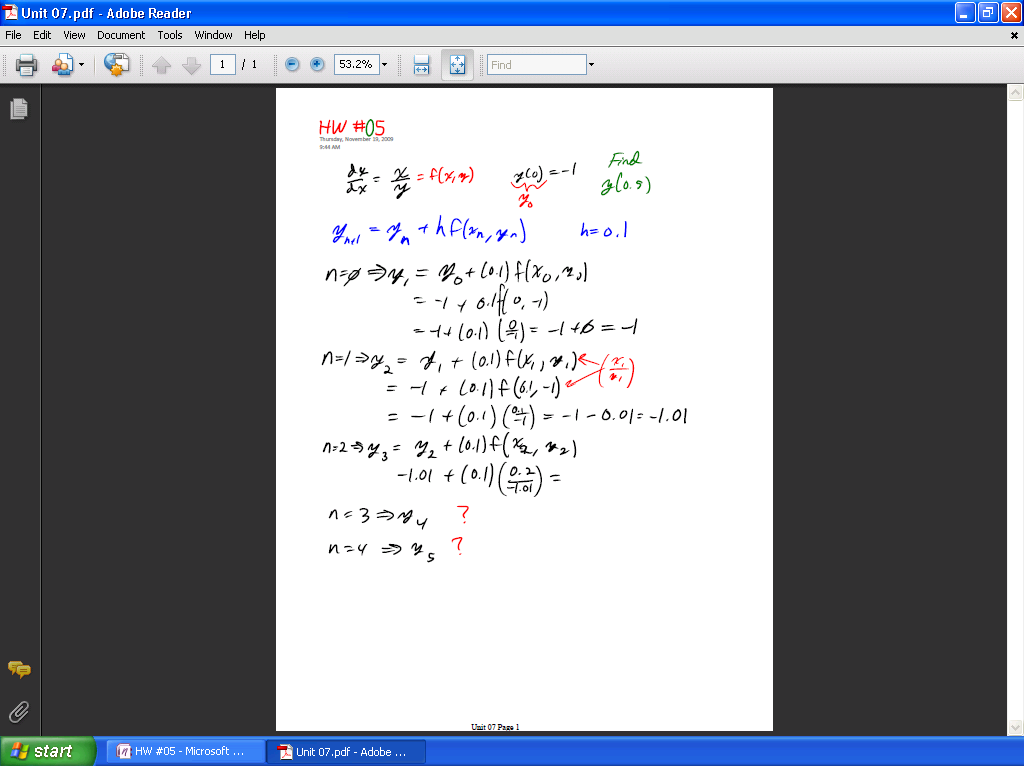 Unit 07.pdf - Adobe Reader
File Edit View Document Tools Window Help
1 / 1 53.2% Find
HW #05
Thursday, November 19, 2009
9:44 AM
dy/dx = x/y = f(x,y) y(0) = -1 Find
y₀ y(0.5)
yₙ₊₁ = yₙ + h f(xₙ, yₙ) h = 0.1
n=0 ⇒ y₁ = y₀ + (0.1) f(x₀, y₀)
= -1 + 0.1 f(0, -1)
= -1 + (0.1) (0/-1) = -1 + 0 = -1
n=1 ⇒ y₂ = y₁ + (0.1) f(x₁, y₁) (x₁/y₁)
= -1 + (0.1) f(0.1, -1)
= -1 + (0.1) (0.1/-1) = -1 - 0.01 = -1.01
n=2 ⇒ y₃ = y₂ + (0.1) f(x₂, y₂)
-1.01 + (0.1) (0.2/-1.01) =
n = 3 ⇒ y₄ ?
n = 4 ⇒ y₅ ?
Unit 07 Page 1
start HW #05 - Microsoft ... Unit 07.pdf - Adobe ...